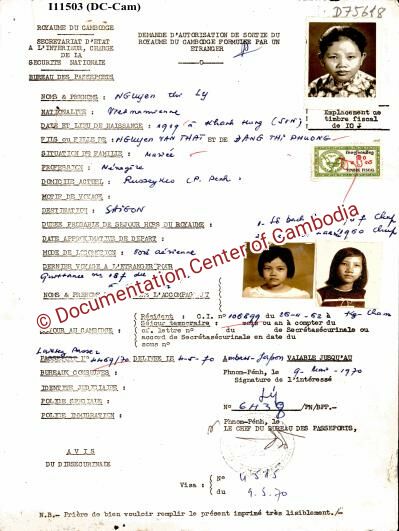 111503 (DC-Cam)
D75618
ROYAUME DU CAMBODGE
SECRETARIAT D'ETAT
A L'INTERIEUR, CHARGE
DE LA
SECURITE NATIONALE
BUREAU DES PASSEPORTS
DEMANDE D'AUTORISATION DE SORTIE DU
ROYAUME DU CAMBODGE FORMULEE PAR UN
ETRANGER
Emplacement de
timbre fiscal
de 10
NOMS & PRENOMS : NGUYEN Thi Ly
NATIONALITE : Vietnamienne
DATE ET LIEU DE NAISSANCE : 1919 à Khanh Hung (SVN)
FILS ou FILLE DE : NGUYEN VAN THAI ET DE DANG THI PHUONG
SITUATION DE FAMILLE : Mariée
PROFESSION : Ménagère
DOMICILE ACTUEL : Russeykeo (P. Penh)
MOTIF DE VOYAGE :
DESTINATION : SAIGON
DUREE PROBABLE DE SEJOUR HORS DU ROYAUME :
DATE APPROXIMATIVE DE DEPART :
MODE DE LOCOMOTION : Voie aérienne
DERNIER VOYAGE A L'ETRANGER POUR
NOMS & PRENOMS
© Documentation Center of Cambodia
SEJOUR AU CAMBODGE :
Résident : C.I. n° 106899 du 26-4-62 à Kg-Cham
Séjour temporaire : ou à compter du
cf. lettre n° du de Secrétasécurinale ou
accord de Secrétasécurinale en date du
sous n°
Laissez Passer
PASSEPORT N° 4469/70 DELIVRE LE 4-5-70 Ambas-Japon VALABLE JUSQU'AU
BUREAUX CONSULTES :
IDENTITE JUDICIAIRE :
POLICE SPECIALE :
POLICE IMMIGRATION :
Phnom-Pénh, le 9 Mai 1970
Signature de l'intéressé
Lý
N° 6438 /PN/BPP.-
Phnom-Pénh, le
LE CHEF DU BUREAU DES PASSEPORTS,
A V I S
DU DIRSECURINALE
Visa : N° 4585
du 9.5.70
N.B.- Prière de bien vouloir remplir le présent imprimé très lisiblement./-